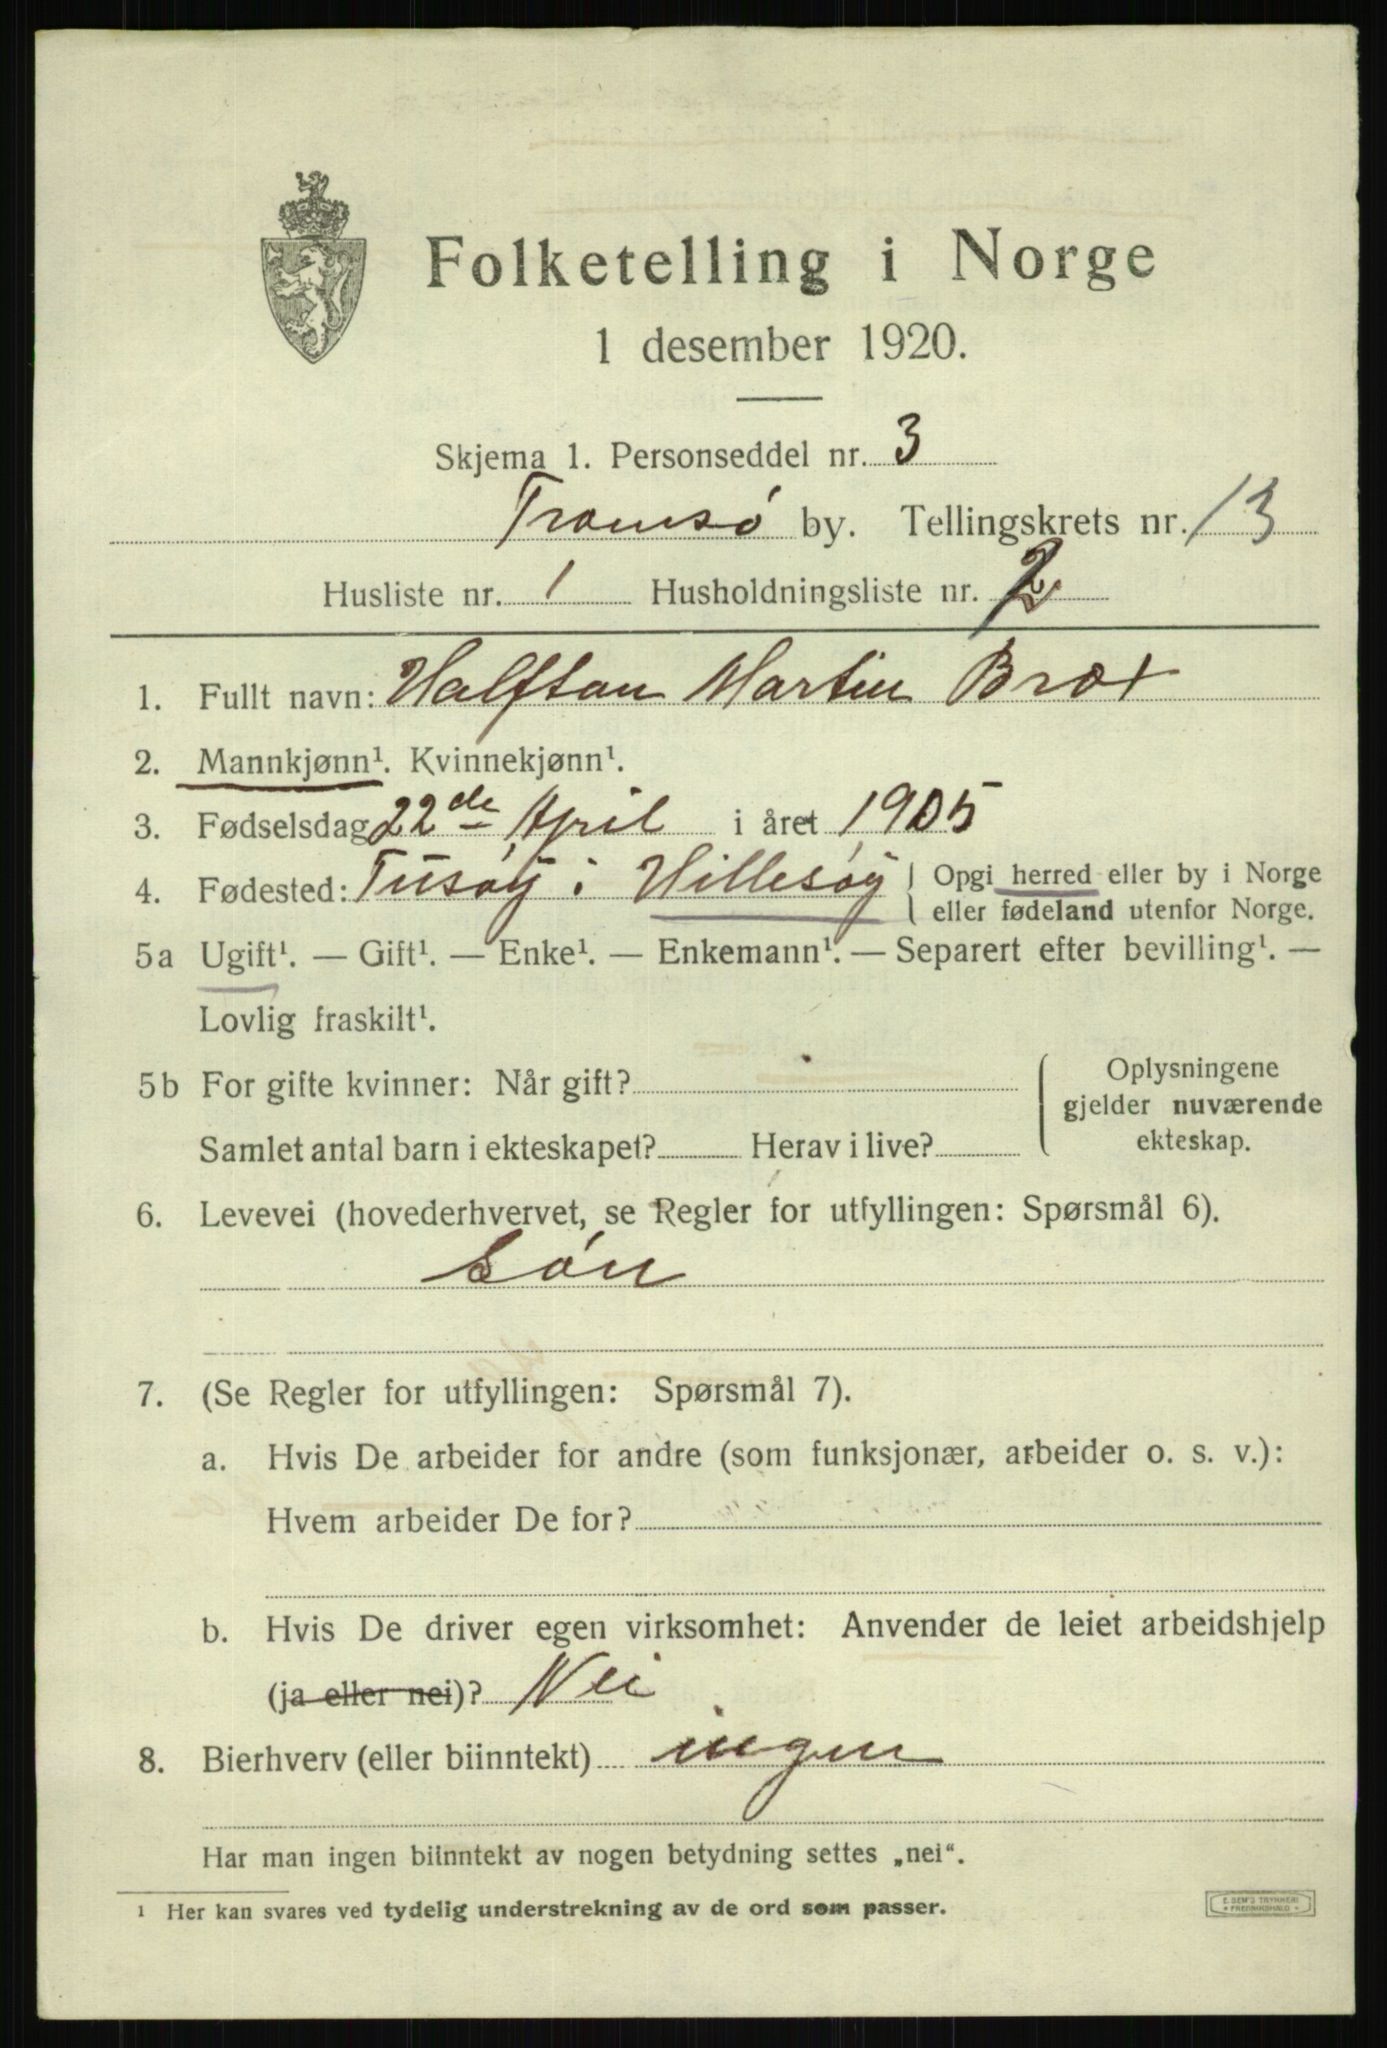 Folketelling i Norge
1 desember 1920.
Skjema 1. Personseddel nr. 3
Tromsø by. Tellingskrets nr. 13
Husliste nr. 1 Husholdningsliste nr. 2
1. Fullt navn: Halftan Martin Brox
2. Mannkjønn¹. Kvinnekjønn¹.
3. Fødselsdag 22de April i året 1905
4. Fødested: Tusøy i Hillesøy { Opgi herred eller by i Norge
eller fødeland utenfor Norge.
5a Ugift¹. — Gift¹. — Enke¹. — Enkemann¹. — Separert efter bevilling¹. —
Lovlig fraskilt¹.
5b For gifte kvinner: Når gift?
Samlet antal barn i ekteskapet? Herav i live?
Oplysningene
gjelder nuværende
ekteskap.
6. Levevei (hovederhvervet, se Regler for utfyllingen: Spørsmål 6).
Søn
7. (Se Regler for utfyllingen: Spørsmål 7).
a. Hvis De arbeider for andre (som funksjonær, arbeider o. s. v.):
Hvem arbeider De for?
b. Hvis De driver egen virksomhet: Anvender de leiet arbeidshjelp
(ja eller nei)? Nei
8. Bierhverv (eller biinntekt) ingen
Har man ingen biinntekt av nogen betydning settes „nei“.
¹ Her kan svares ved tydelig understrekning av de ord som passer.
E. SEM'S TRYKKERI
FREDRIKSHALD